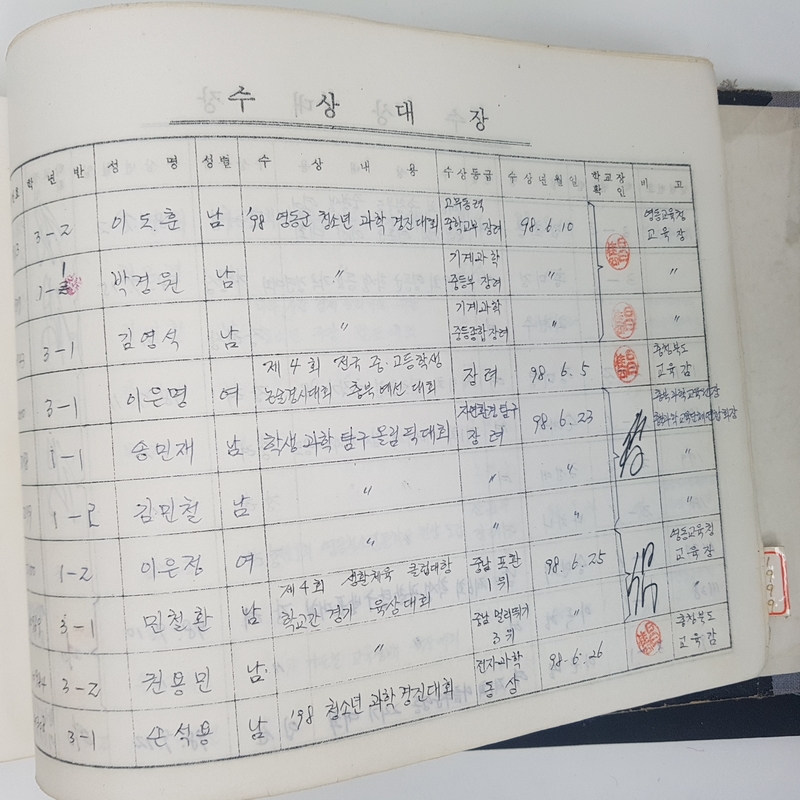 수 상 대 장
학 년 반 성 명 성별 수 상 내 용 수상등급 수상년월일 학교장 확인 비 고
3-2 이도훈 남 '98 영동군 청소년 과학 경진대회 고무동력 중학교부 장려 98.6.10 영동교육청 교육장
1-1 박경원 남 〃 기계과학 중등부 장려 〃
3-1 김영석 남 〃 기계과학 중등종합 장려
3-1 이은명 여 제4회 전국 중·고등학생 논술경시대회 충북예선대회 장려 98.6.5 충청북도 교육감
1-1 송민재 남 학생 과학 탐구 올림픽 대회 자연환경탐구 장려 98.6.23
1-2 김민철 남 〃 〃 〃 〃
1-2 이은정 여 〃 〃 〃 〃
3-1 민철환 남 제4회 생활체육 클럽대항 학교간 경기 육상대회 중남 포환 1위 98.6.25 영동교육청 교육장
3-2 권용민 남 〃 중남 멀리뛰기 3위 〃 〃
3-1 손석용 남 '98 청소년 과학경진대회 전자과학 동상 98.6.26 충청북도 교육감
1999